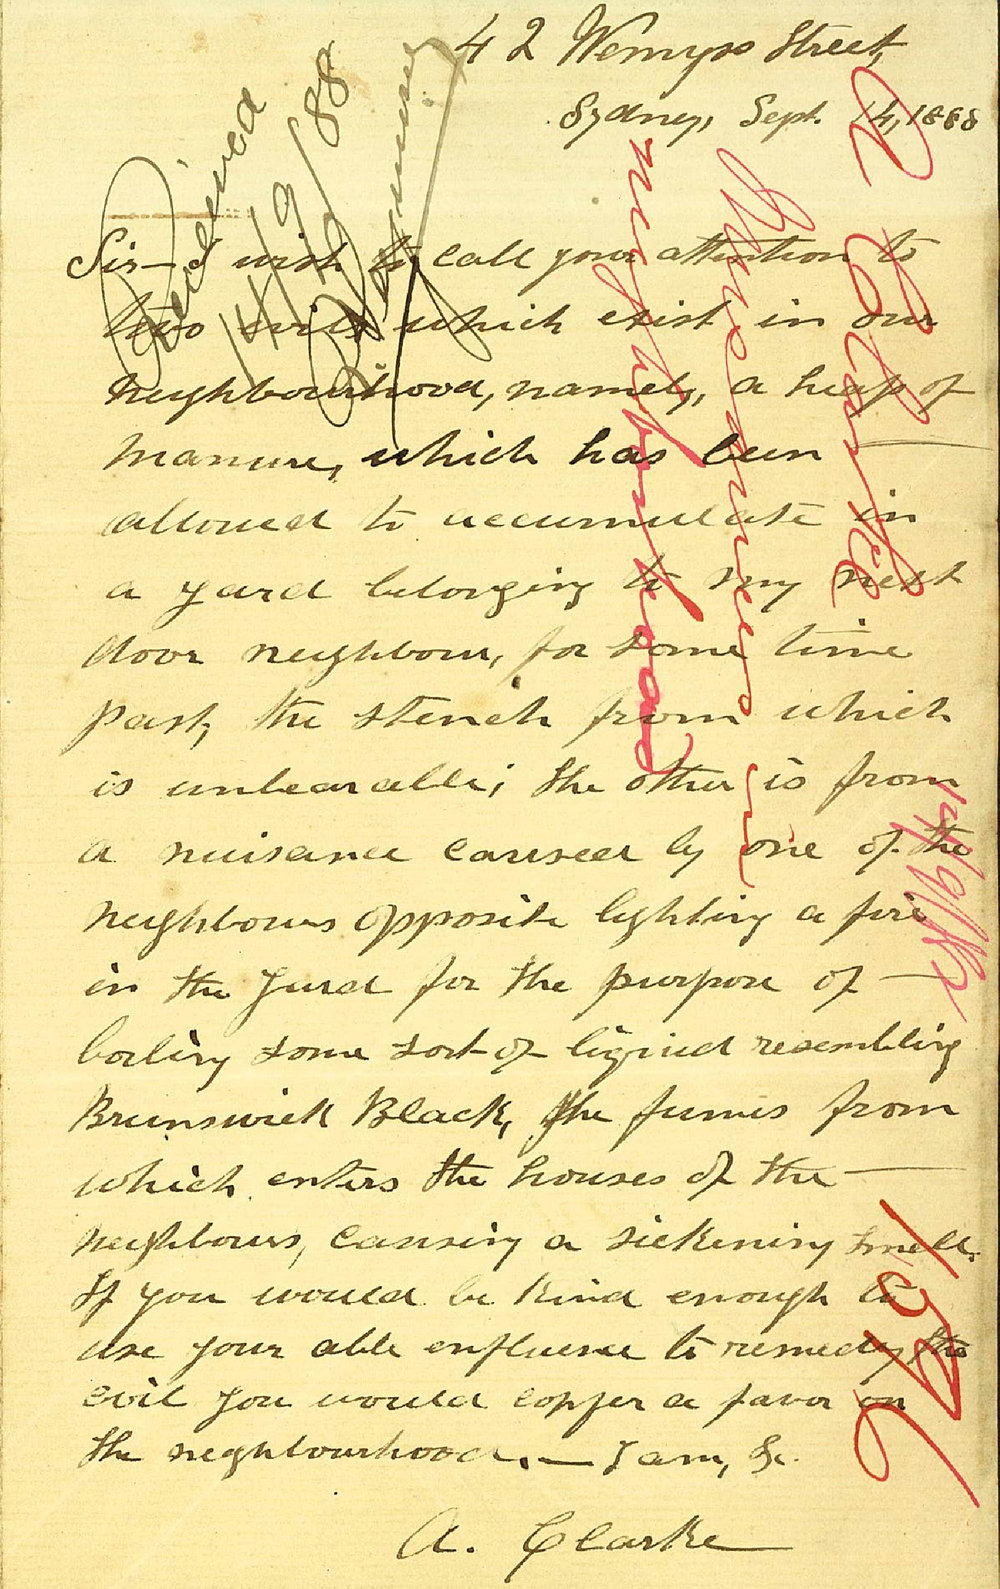 42 Wemyss Street,
Sydney, Sept. 14, 1888
Received
14/9/88
Sir — I wish to call your attention to
two evils which exist in our
neighbourhood, namely, a heap of
manure, which has been
allowed to accumulate in
a yard belonging to my next
door neighbour, for some time
past, the stench from which
is unbearable; the other is from
a nuisance caused by one of the
neighbours opposite lighting a fire
in the yard for the purpose of —
boiling some sort of liquid resembling
Brunswick Black, the fumes from
which enters the houses of the —
neighbours, causing a sickening smell.
If you would be kind enough to
use your able enfluence to remedy the
evil you would copfer a favor on
the neghbourhood. — I am, &c.
A. Clarke
A Clarke
Nuisances in
neighborhood
14/9/88